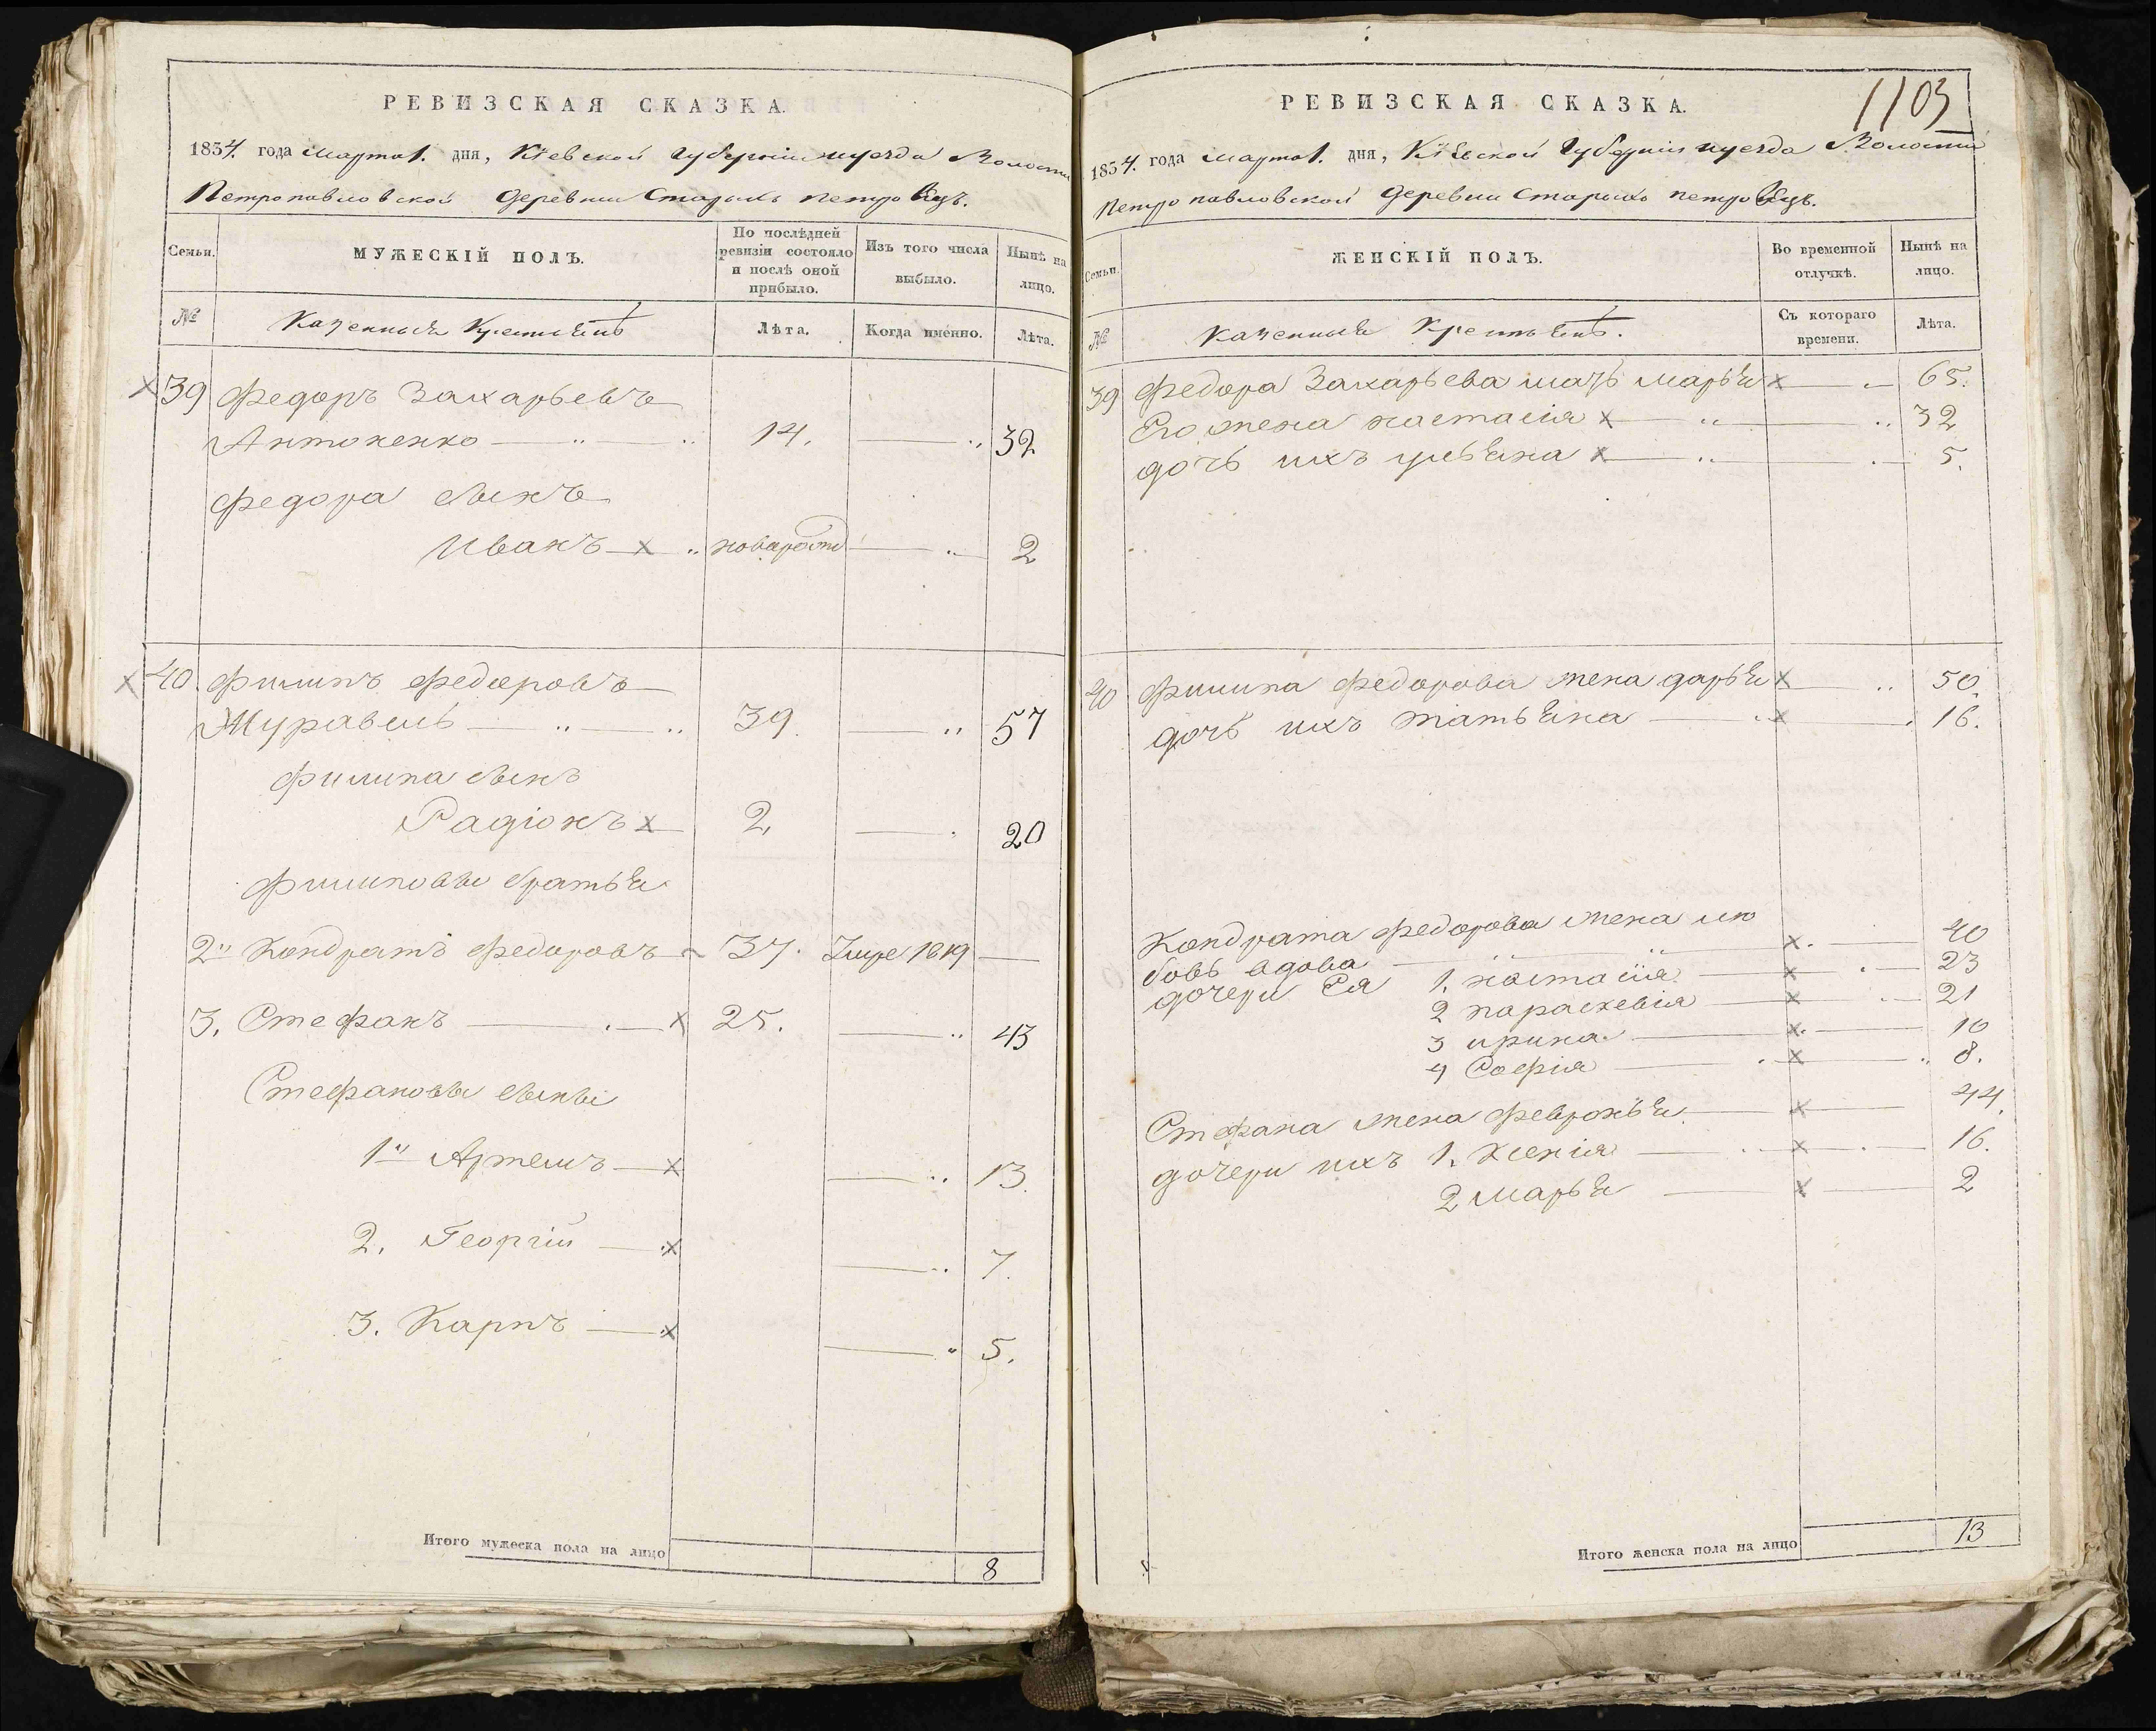 РЕВИЗСКАЯ СКАЗКА.
1854. года Марта 1. дня, Кіевской Губерніи и уезда Волости
Петропавловской деревни Старыхъ петровецъ.
Семьи. МУЖЕСКІЙ ПОЛЪ. По послѣдней ревизіи состояло и послѣ оной прибыло. Изъ того числа выбыло. Ныпѣ на лицо.
№ Казенныя Крестьянѣ Лѣта. Когда именно. Лѣта.
39 Федоръ Захарьевъ
Антоненко 14. 32
Федора сынъ
Иванъ новорожд 2
40. Филипъ Федоровъ
Журавель 39. 57
Филипа сынъ
Радіонъ 2. 20
Филиповы братья
2 Кондратъ Федоровъ 37. Умре 1849
3. Стефанъ 25. 43
Стефановы сыны
1 Артемъ 13.
2. Георгій 7.
3. Карпъ 5.
Итого мужеска пола на лицо 8
1103
РЕВИЗСКАЯ СКАЗКА.
1854. года Марта 1. дня, Кіевской Губерніи и уезда Волости
Петропавловской деревни Старыхъ петровецъ.
Семьи. ЖЕНСКІЙ ПОЛЪ. Во временной отлучкѣ. Нынѣ на лицо.
№ Казенныя Крестьянѣ. Съ котораго времени. Лѣта.
39 Федора Захарьева мать марья 65.
Его жена настасія 32
дочь ихъ ульяна 5.
40 Филипа Федорова жена дарья 50.
дочь ихъ татьяна 16.
Кондрата Федорова жена лю
бовь вдова 40
дочери Ея 1. настасія 23
2 параскевія 21
3 ирина 10
4 Софія 8.
Стефана жена Февронья 44.
дочери ихъ 1. Ксенія 16.
2 марья 2
Итого женска пола на лицо 13